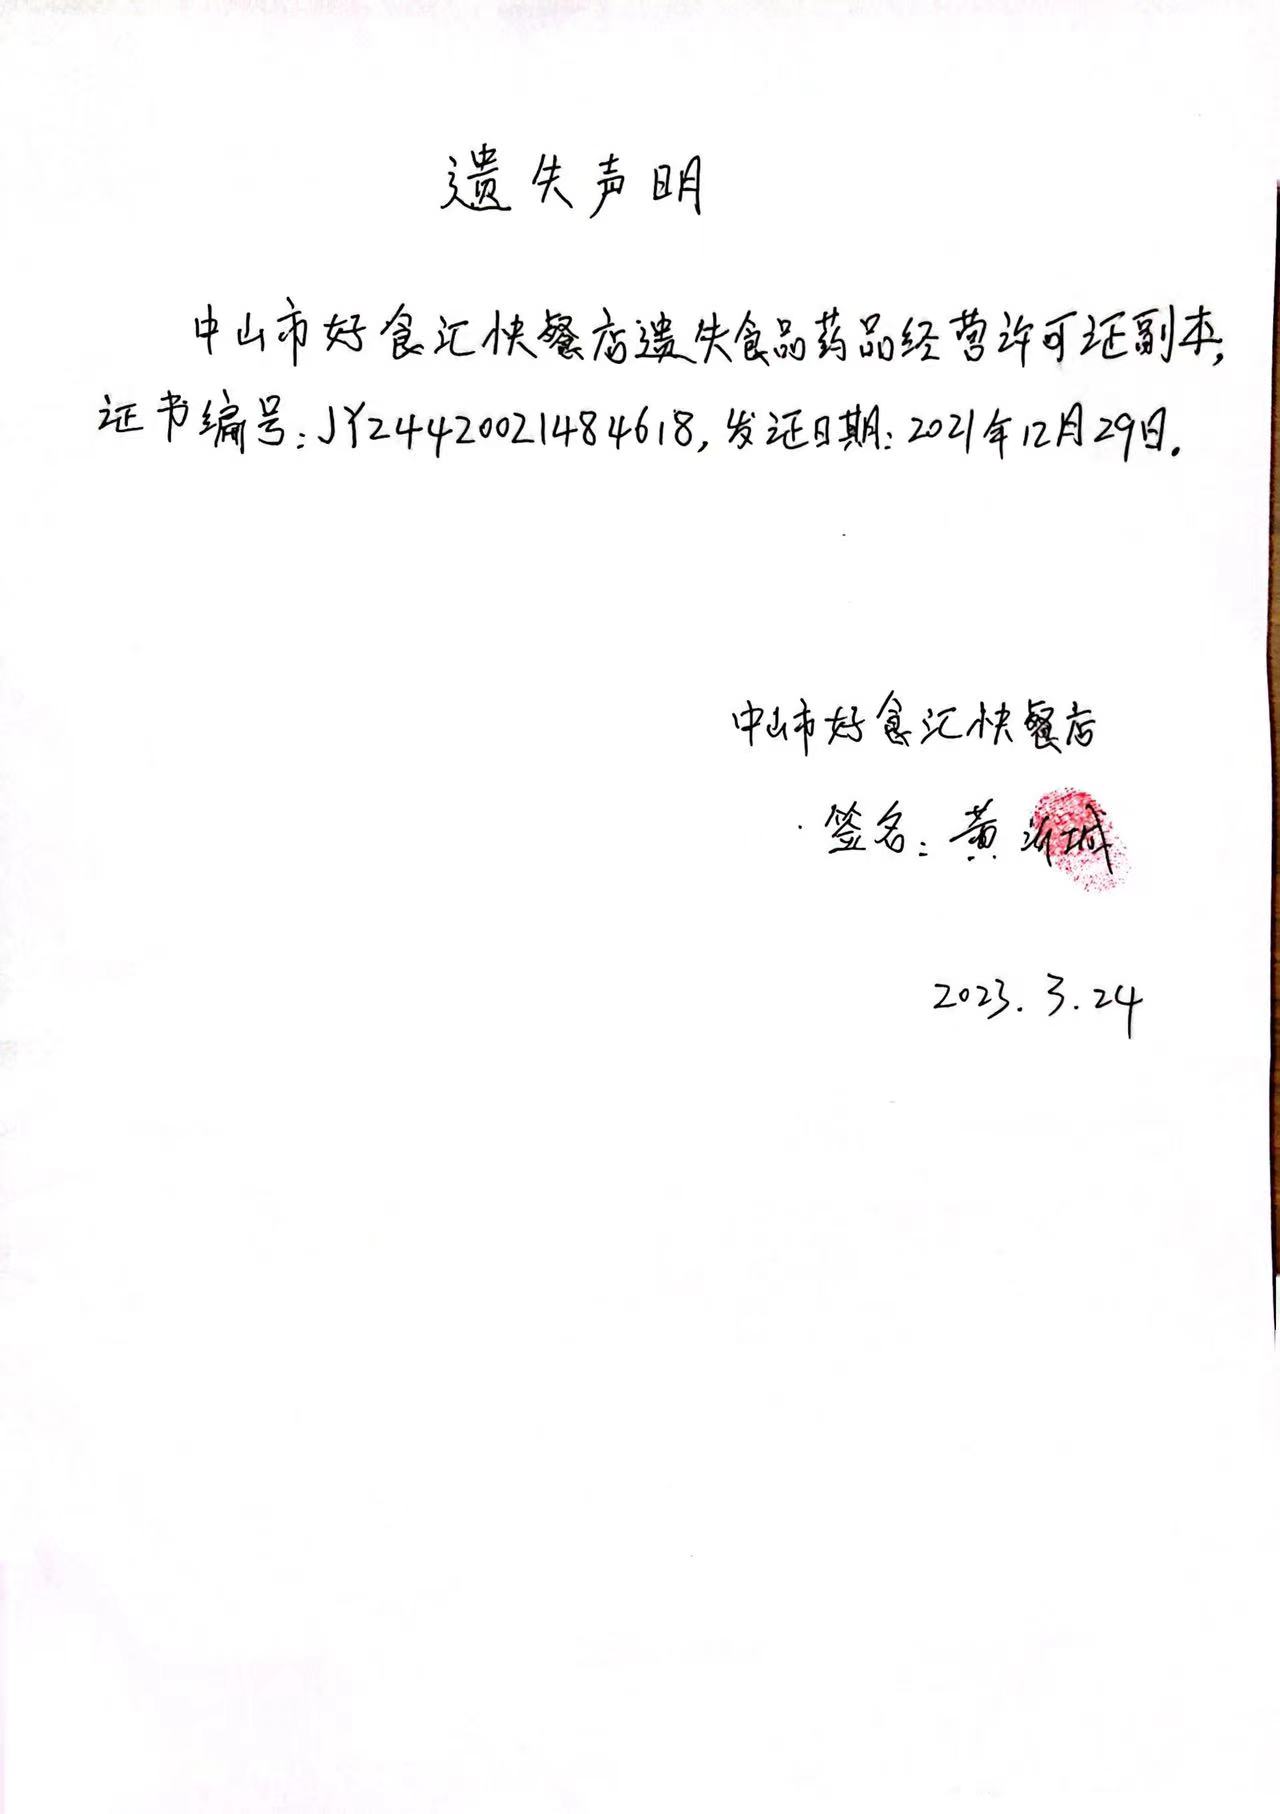 遗失声明
中山市好食汇快餐店遗失食品药品经营许可证副本,
证书编号:JY24420021484618,发证日期:2021年12月29日.
中山市好食汇快餐店
签名:黄沂城
2023.3.24